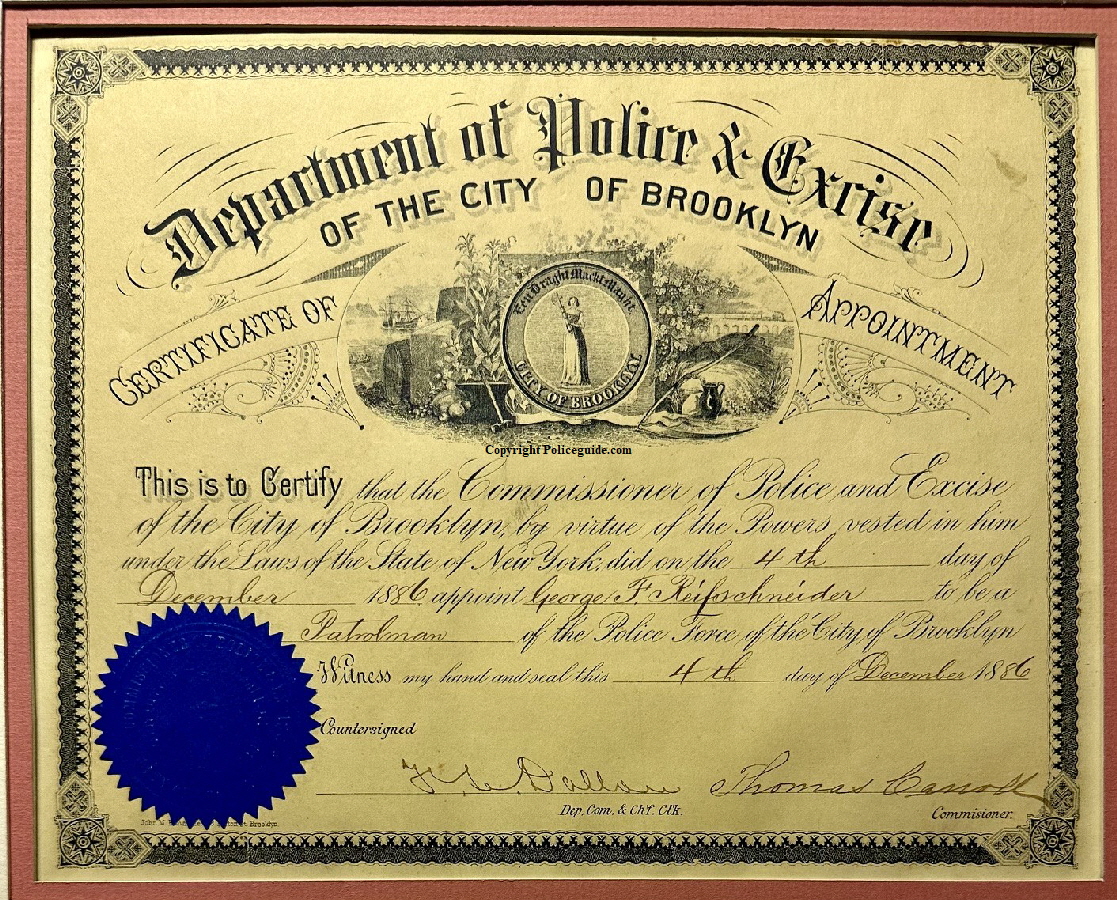 Department of Police & Excise
OF THE CITY OF BROOKLYN
CERTIFICATE OF APPOINTMENT
Een Draght Mackt Maght
CITY OF BROOKLYN
Copyright Policeguide.com
This is to Certify that the Commissioner of Police and Excise
of the City of Brooklyn, by virtue of the Powers vested in him
under the Laws of the State of New York, did on the 4th day of
December 1886 appoint George F. Reifschneider to be a
Patrolman of the Police Force of the City of Brooklyn
Witness my hand and seal this 4th day of December 1886
Countersigned
Thomas Carroll
Dep. Com. & Chf. Clk.
Commisioner.
Brooklyn.